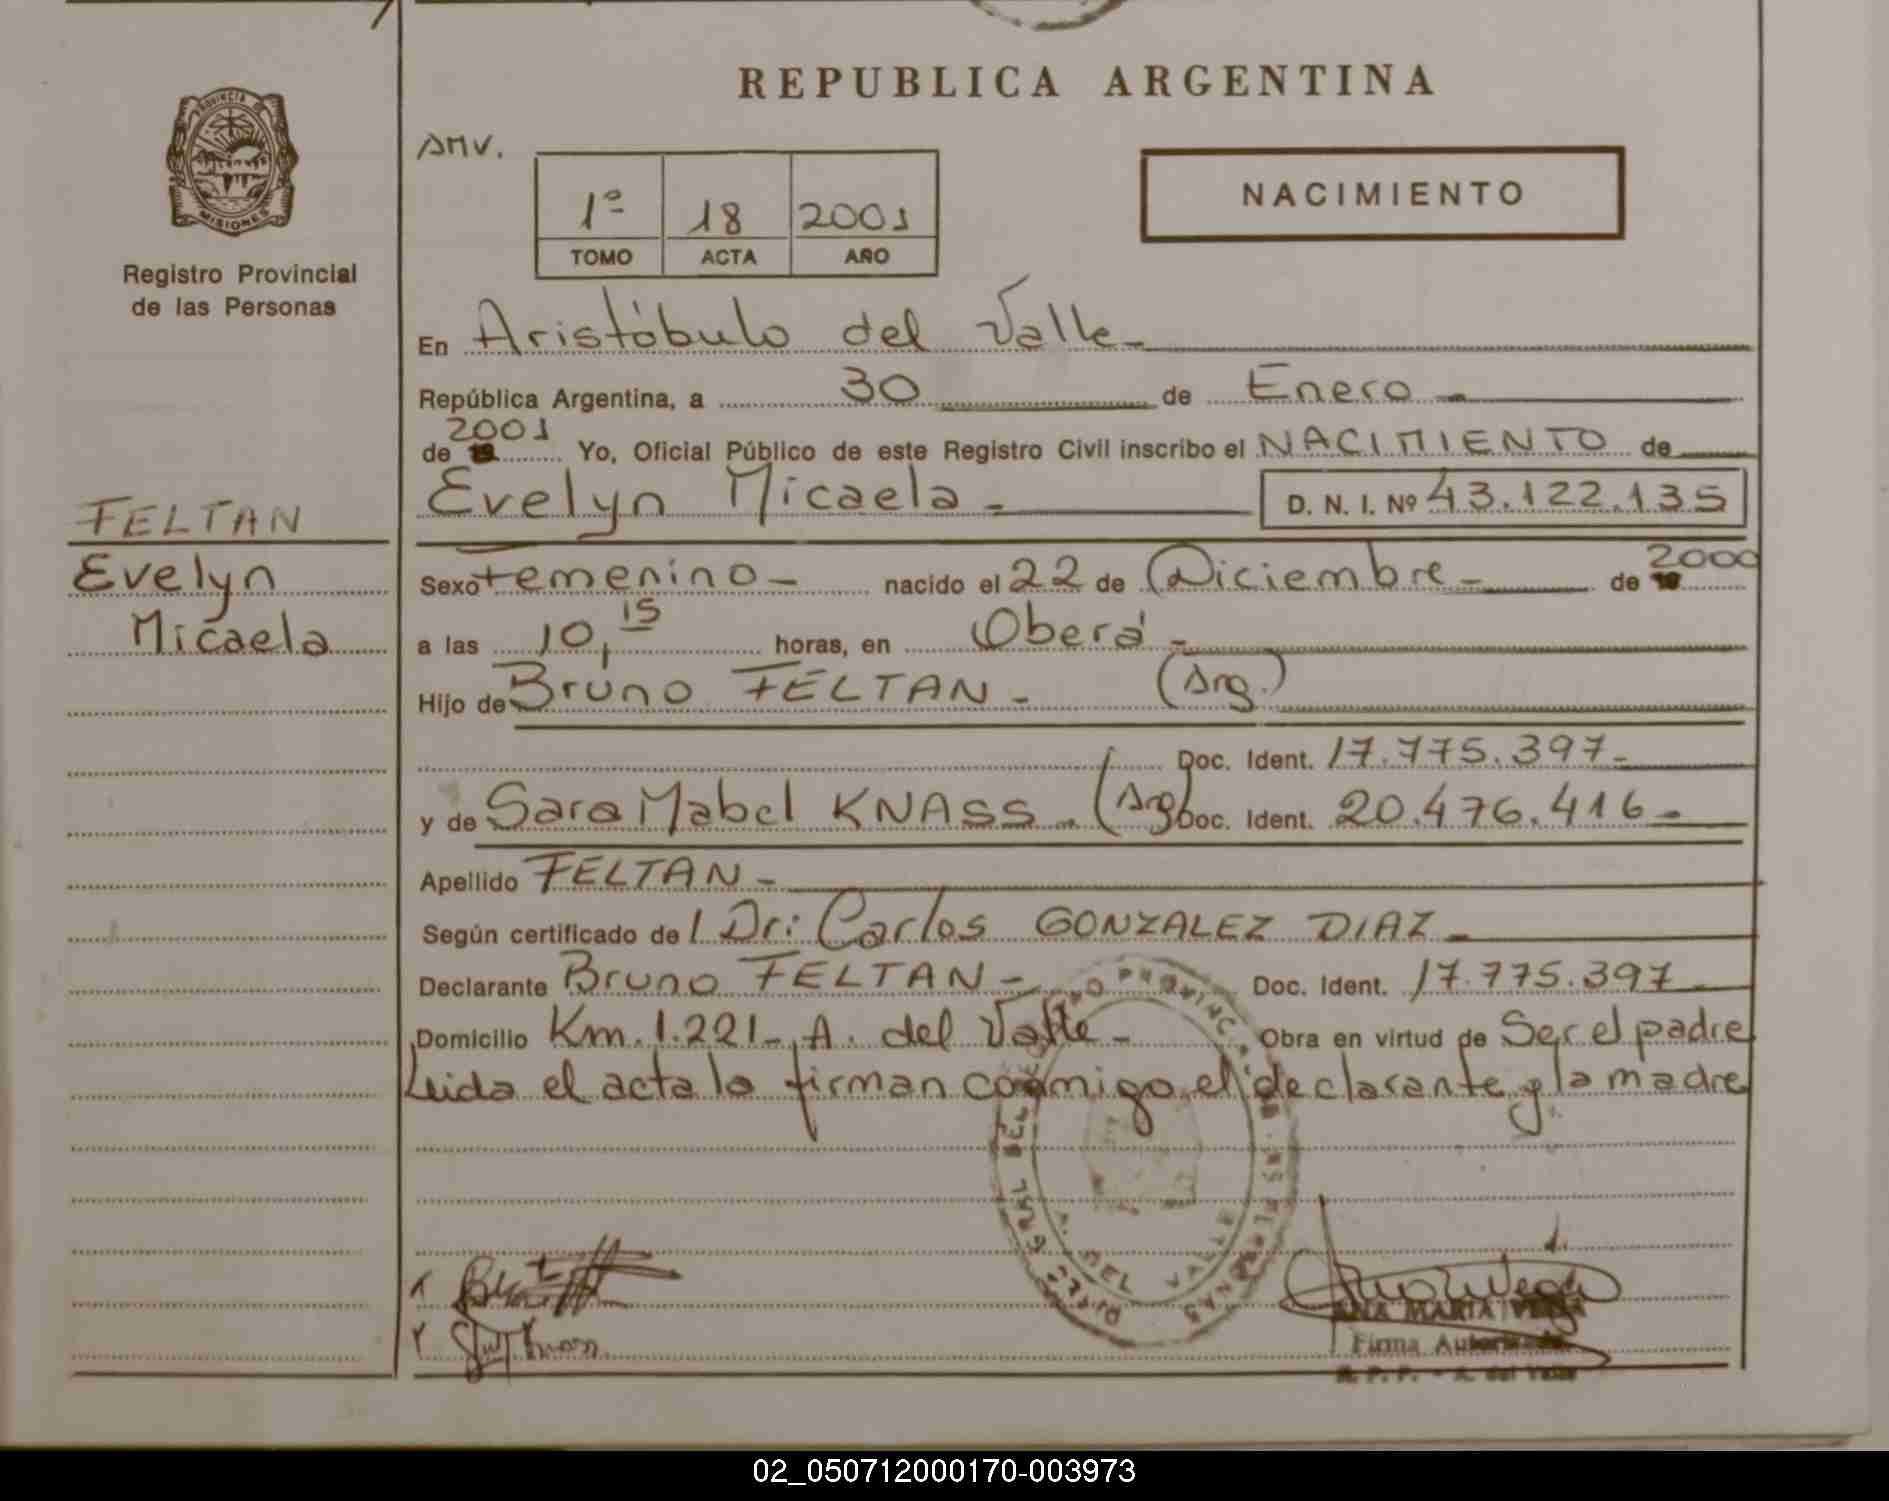 REPUBLICA ARGENTINA
PROVINCIA DE
MISIONES
Registro Provincial
de las Personas
AMV.
1º 18 2001
TOMO ACTA AÑO
NACIMIENTO
En Aristóbulo del Valle-
República Argentina, a 30 de Enero-
de 19 2001 Yo, Oficial Público de este Registro Civil inscribo el NACIMIENTO de
Evelyn Micaela- D. N. I. Nº 43.122.135
FELTAN
Evelyn
Micaela
Sexo Femenino- nacido el 22 de Diciembre- de 19 2000
a las 10,15 horas, en Oberá-
Hijo de Bruno FELTAN- (Arg.)
Doc. Ident. 17.775.397-
y de Sara Mabel KNASS- (Arg) Doc. Ident. 20.476.416-
Apellido FELTAN-
Según certificado de l Dr: Carlos GONZALEZ DIAZ-
Declarante Bruno FELTAN- Doc. Ident. 17.775.397
Domicilio Km. 1.221- A. del Valle- Obra en virtud de Ser el padre
Leida el acta la firman conmigo el declarante y la madre
A. DEL VALLE
ANA MARIA VEGA
Firma Autorizada
R. P. P. - A. del Valle
02_050712000170-003973